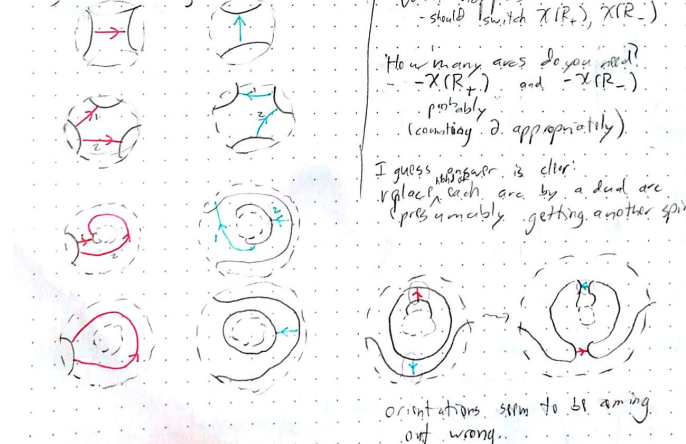 - should switch χ(R₊), χ(R₋)
How many arcs do you need?
- -χ(R₊) and -χ(R₋)
probably
(counting ∂ appropriately).
I guess answer is clear:
replace nbhd of each arc by a dual arc
presumably getting another
1
2
1
2
1
2
1
2
orientations seem to be coming
out wrong..